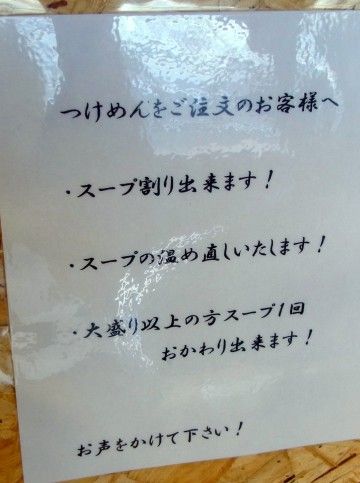 つけめんをご注文のお客様へ
・スープ割り出来ます！
・スープの温め直しいたします！
・大盛り以上の方スープ1回
おかわり出来ます！
お声をかけて下さい！